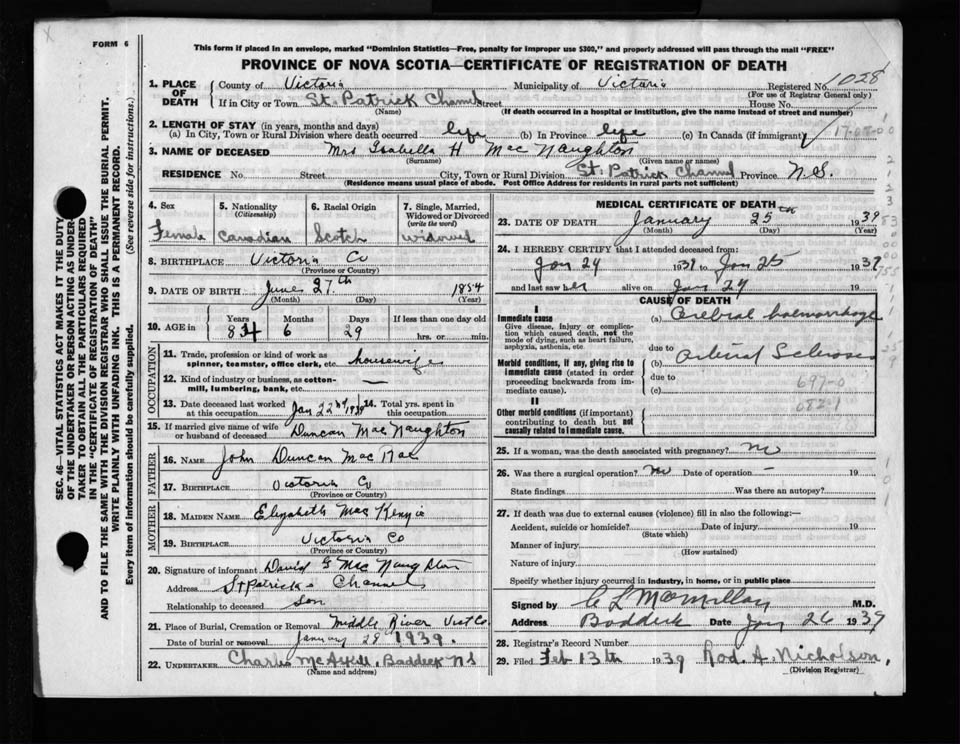 FORM 6
This form if placed in an envelope, marked "Dominion Statistics—Free, penalty for improper use $300," and properly addressed will pass through the mail "FREE"
PROVINCE OF NOVA SCOTIA—CERTIFICATE OF REGISTRATION OF DEATH
SEC. 46—VITAL STATISTICS ACT MAKES IT THE DUTY
OF THE UNDERTAKER OR PERSON ACTING AS UNDER-
TAKER TO OBTAIN ALL THE PARTICULARS REQUIRED
IN THE "CERTIFICATE OF REGISTRATION OF DEATH"
AND TO FILE THE SAME WITH THE DIVISION REGISTRAR WHO SHALL ISSUE THE BURIAL PERMIT.
WRITE PLAINLY WITH UNFADING INK. THIS IS A PERMANENT RECORD.
Every item of information should be carefully supplied. (See reverse side for instructions.)
1. PLACE OF DEATH County of Victoria Municipality of Victoria Registered No. 1028
(For use of Registrar General only)
If in City or Town St. Patrick Channel Street House No.
(Name) (If death occurred in a hospital or institution, give the name instead of street and number)
2. LENGTH OF STAY (in years, months and days)
(a) In City, Town or Rural Division where death occurred life (b) In Province life (c) In Canada (if immigrant)
3. NAME OF DECEASED Mrs Isabella H Mac Naughton
(Surname) (Given name or names)
RESIDENCE No. Street City, Town or Rural Division St. Patrick Channel Province N.S.
(Residence means usual place of abode. Post Office Address for residents in rural parts not sufficient)
4. Sex 5. Nationality (Citizenship) 6. Racial Origin 7. Single, Married, Widowed or Divorced (write the word)
Female Canadian Scotch Widowed
8. BIRTHPLACE Victoria Co
(Province or Country)
9. DATE OF BIRTH June 27th 1854
(Month) (Day) (Year)
10. AGE in Years Months Days If less than one day old
84 6 29 hrs. or min.
OCCUPATION
11. Trade, profession or kind of work as spinner, teamster, office clerk, etc. housewife
12. Kind of industry or business, as cotton-mill, lumbering, bank, etc. —
13. Date deceased last worked at this occupation Jan 22nd 1939 14. Total yrs. spent in this occupation
15. If married give name of wife or husband of deceased Duncan Mac Naughton
FATHER
16. NAME John Duncan Mac Rae
17. BIRTHPLACE Victoria Co
(Province or Country)
MOTHER
18. MAIDEN NAME Elizabeth Mac Kenzie
19. BIRTHPLACE Victoria Co
(Province or Country)
20. Signature of informant David G Mac Naughton
Address St Patricks Channel
Relationship to deceased Son
21. Place of Burial, Cremation or Removal Middle River Vict Co
Date of burial or removal January 28 1939.
22. UNDERTAKER Charles McAskill, Baddeck N S
(Name and address)
MEDICAL CERTIFICATE OF DEATH
23. DATE OF DEATH January 25th 1939
(Month) (Day) (Year)
24. I HEREBY CERTIFY that I attended deceased from:
Jan 24 1939 to Jan 25 1939
and last saw her alive on Jan 24
CAUSE OF DEATH
I
Immediate cause (a) Cerebral haemorrhage
Give disease, injury or complication which caused death, not the mode of dying, such as heart failure, asphyxia, asthenia, etc.
due to
Morbid conditions, if any, giving rise to immediate cause (stated in order proceeding backwards from immediate cause). (b) Arterial Sclerosis
due to
(c)
697-0
082-1
II
Other morbid conditions (if important) contributing to death but not causally related to immediate cause.
25. If a woman, was the death associated with pregnancy? no
26. Was there a surgical operation? no Date of operation — 19
State findings Was there an autopsy?
27. If death was due to external causes (violence) fill in also the following:—
Accident, suicide or homicide? Date of injury 19
(State which)
Manner of injury
(How sustained)
Nature of injury
Specify whether injury occurred in industry, in home, or in public place
Signed by C L McMillan M.D.
Address Baddeck Date Jan 26 1939
28. Registrar's Record Number
29. Filed Feb 13th 1939 Rod. A. Nicholson,
(Division Registrar)